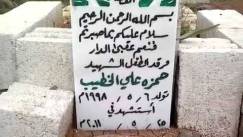 بسم الله الرحمن الرحيم
سلام عليكم بما صبرتم
فنعم عقبى الدار
مرقد الطفل الشهيد
حمزه علي الخطيب
تولد ٦ / ٥ / ١٩٩٨م
أستشهد في
٢٥ / ٥ / ٢٠١١م